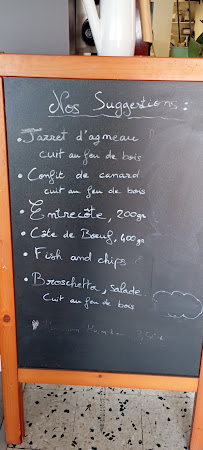 Nos Suggestions :
• Jarret d'agneau
cuit au feu de bois
• Confit de canard
cuit au feu de bois
• Entrecôte, 200gr
• Côte de Bœuf, 400gr
• Fish and chips
• Broschetta, salade
Cuit au feu de bois